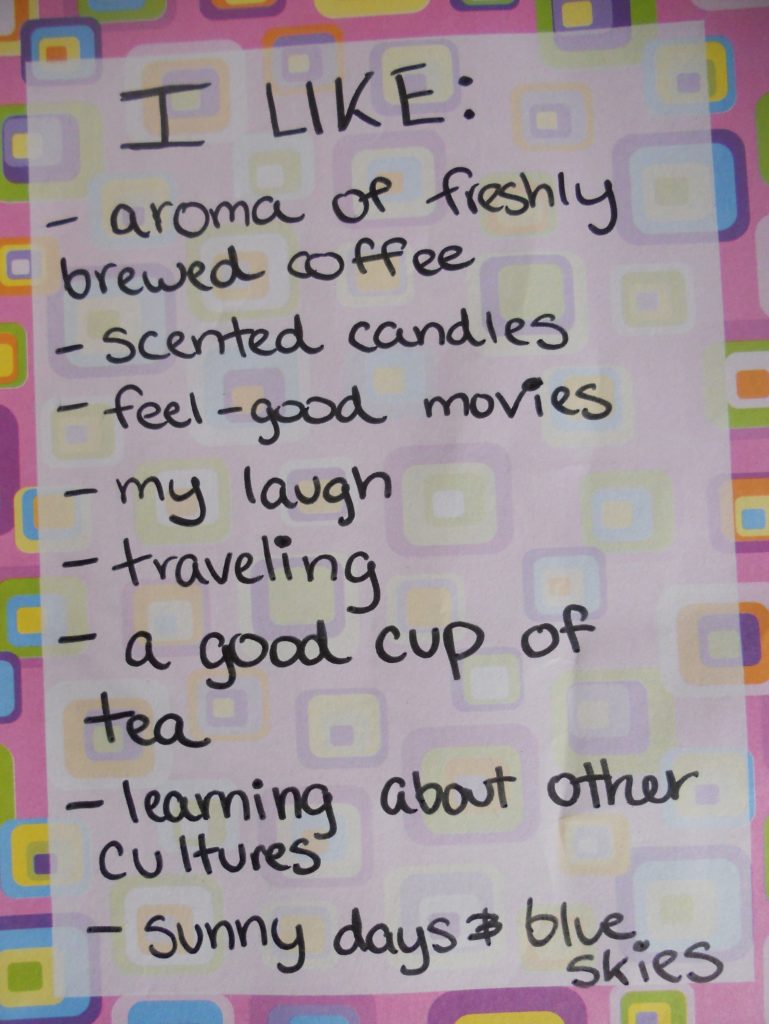 I LIKE:
- aroma of freshly
brewed coffee
- scented candles
- feel-good movies
- my laugh
- traveling
- a good cup of
tea
- learning about other
cultures
- sunny days & blue
skies